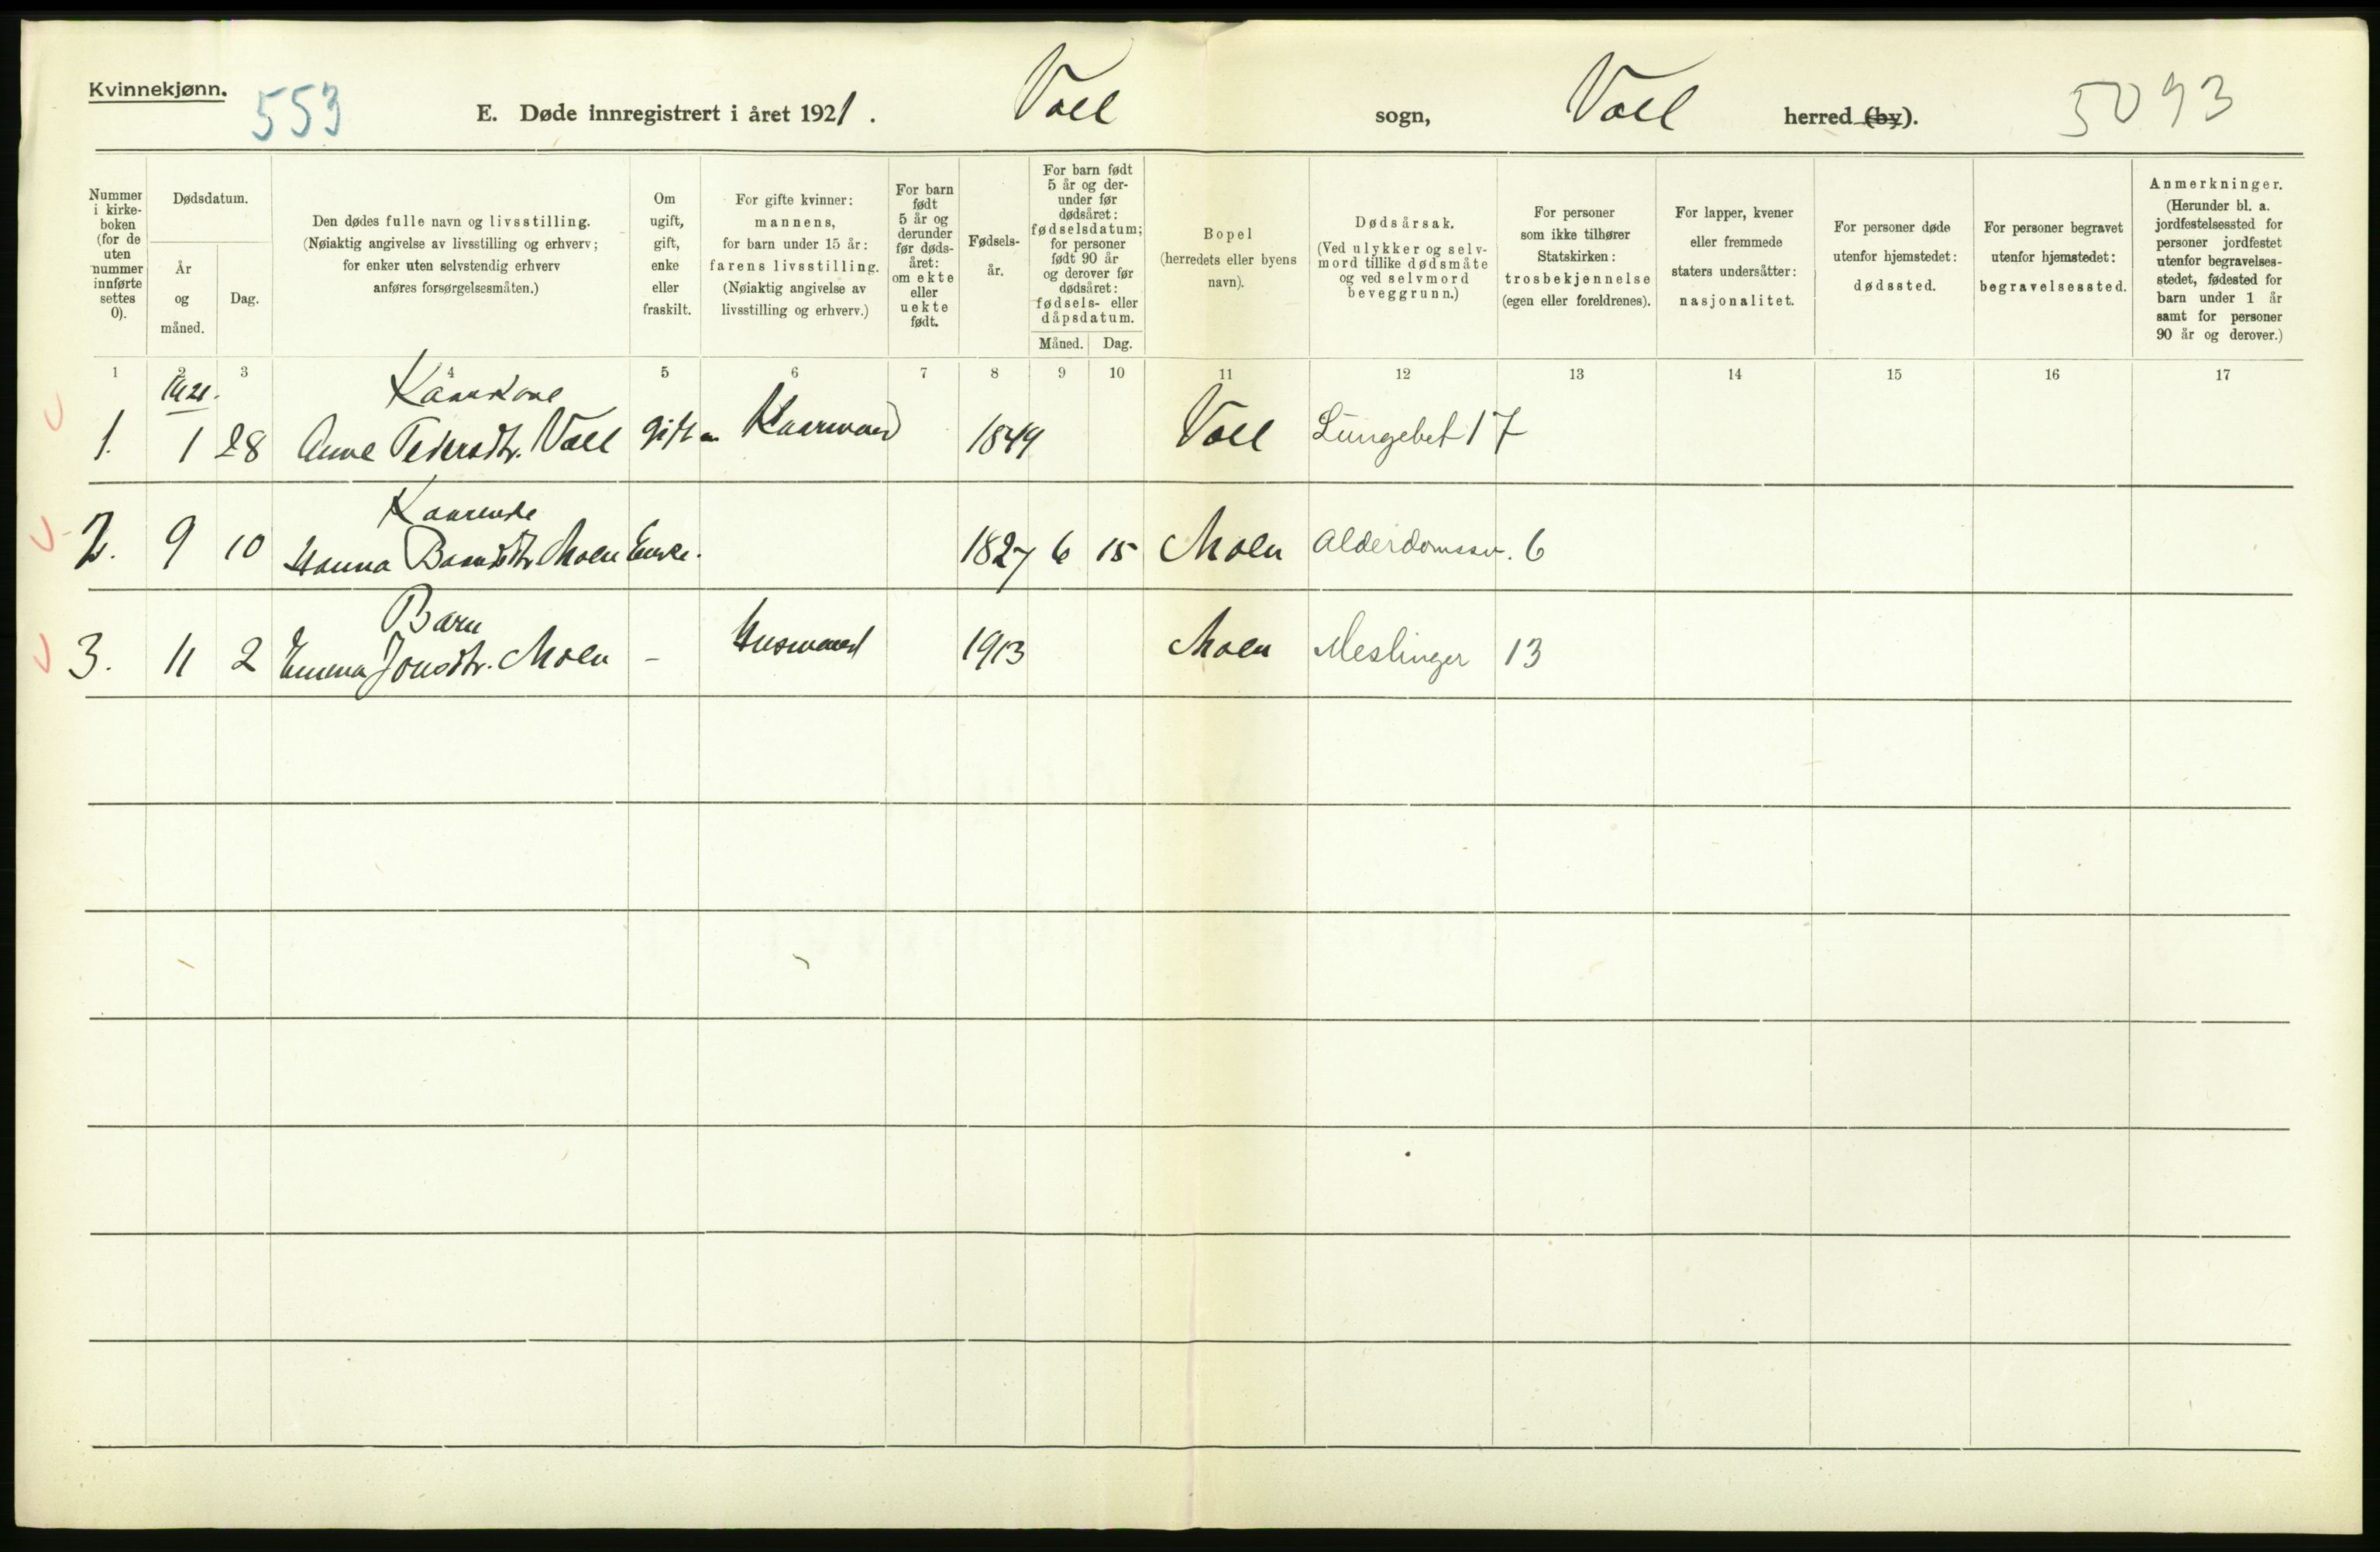 Kvinnekjønn.
553
E. Døde innregistrert i året 1921. Voll sogn, Voll herred (by).
5093
Nummer i kirke-boken (for de uten nummer innførte settes 0).
Dødsdatum.
År og måned.
Dag.
Den dødes fulle navn og livsstilling.
(Nøiaktig angivelse av livsstilling og erhverv;
for enker uten selvstendig erhverv
anføres forsørgelsesmåten.)
Om ugift, gift, enke eller fraskilt.
For gifte kvinner:
mannens,
for barn under 15 år:
farens livsstilling.
(Nøiaktig angivelse av
livsstilling og erhverv.)
For barn født 5 år og derunder før døds-året: om ekte eller uekte født.
Fødsels-år.
For barn født
5 år og der-
under før
dødsåret:
fødselsdatum;
for personer
født 90 år
og derover før
dødsåret:
fødsels- eller
dåpsdatum.
Måned. Dag.
Bopel
(herredets eller byens
navn).
Dødsårsak.
(Ved ulykker og selv-
mord tillike dødsmåte
og ved selvmord
beveggrunn.)
For personer
som ikke tilhører
Statskirken:
trosbekjennelse
(egen eller foreldrenes).
For lapper, kvener
eller fremmede
staters undersåtter:
nasjonalitet.
For personer døde
utenfor hjemstedet:
dødssted.
For personer begravet
utenfor hjemstedet:
begravelsessted.
Anmerkninger.
(Herunder bl. a.
jordfestelsessted for
personer jordfestet
utenfor begravelses-
stedet, fødested for
barn under 1 år
samt for personer
90 år og derover.)
1 2 3 4 5 6 7 8 9 10 11 12 13 14 15 16 17
1921.
Kaarkone
1. 1 28 Anne Pedersdtr. Voll gift Kaarmand 1849 Voll Lungebet 17
Kaarenke
2. 9 10 Hanna Moen Enke. 1827 6 15 Moen Alderdomssv. 6
Barn
3. 11 2 Emma Jonsdtr. Moen - Husmand 1913 Moen Meslinger 13